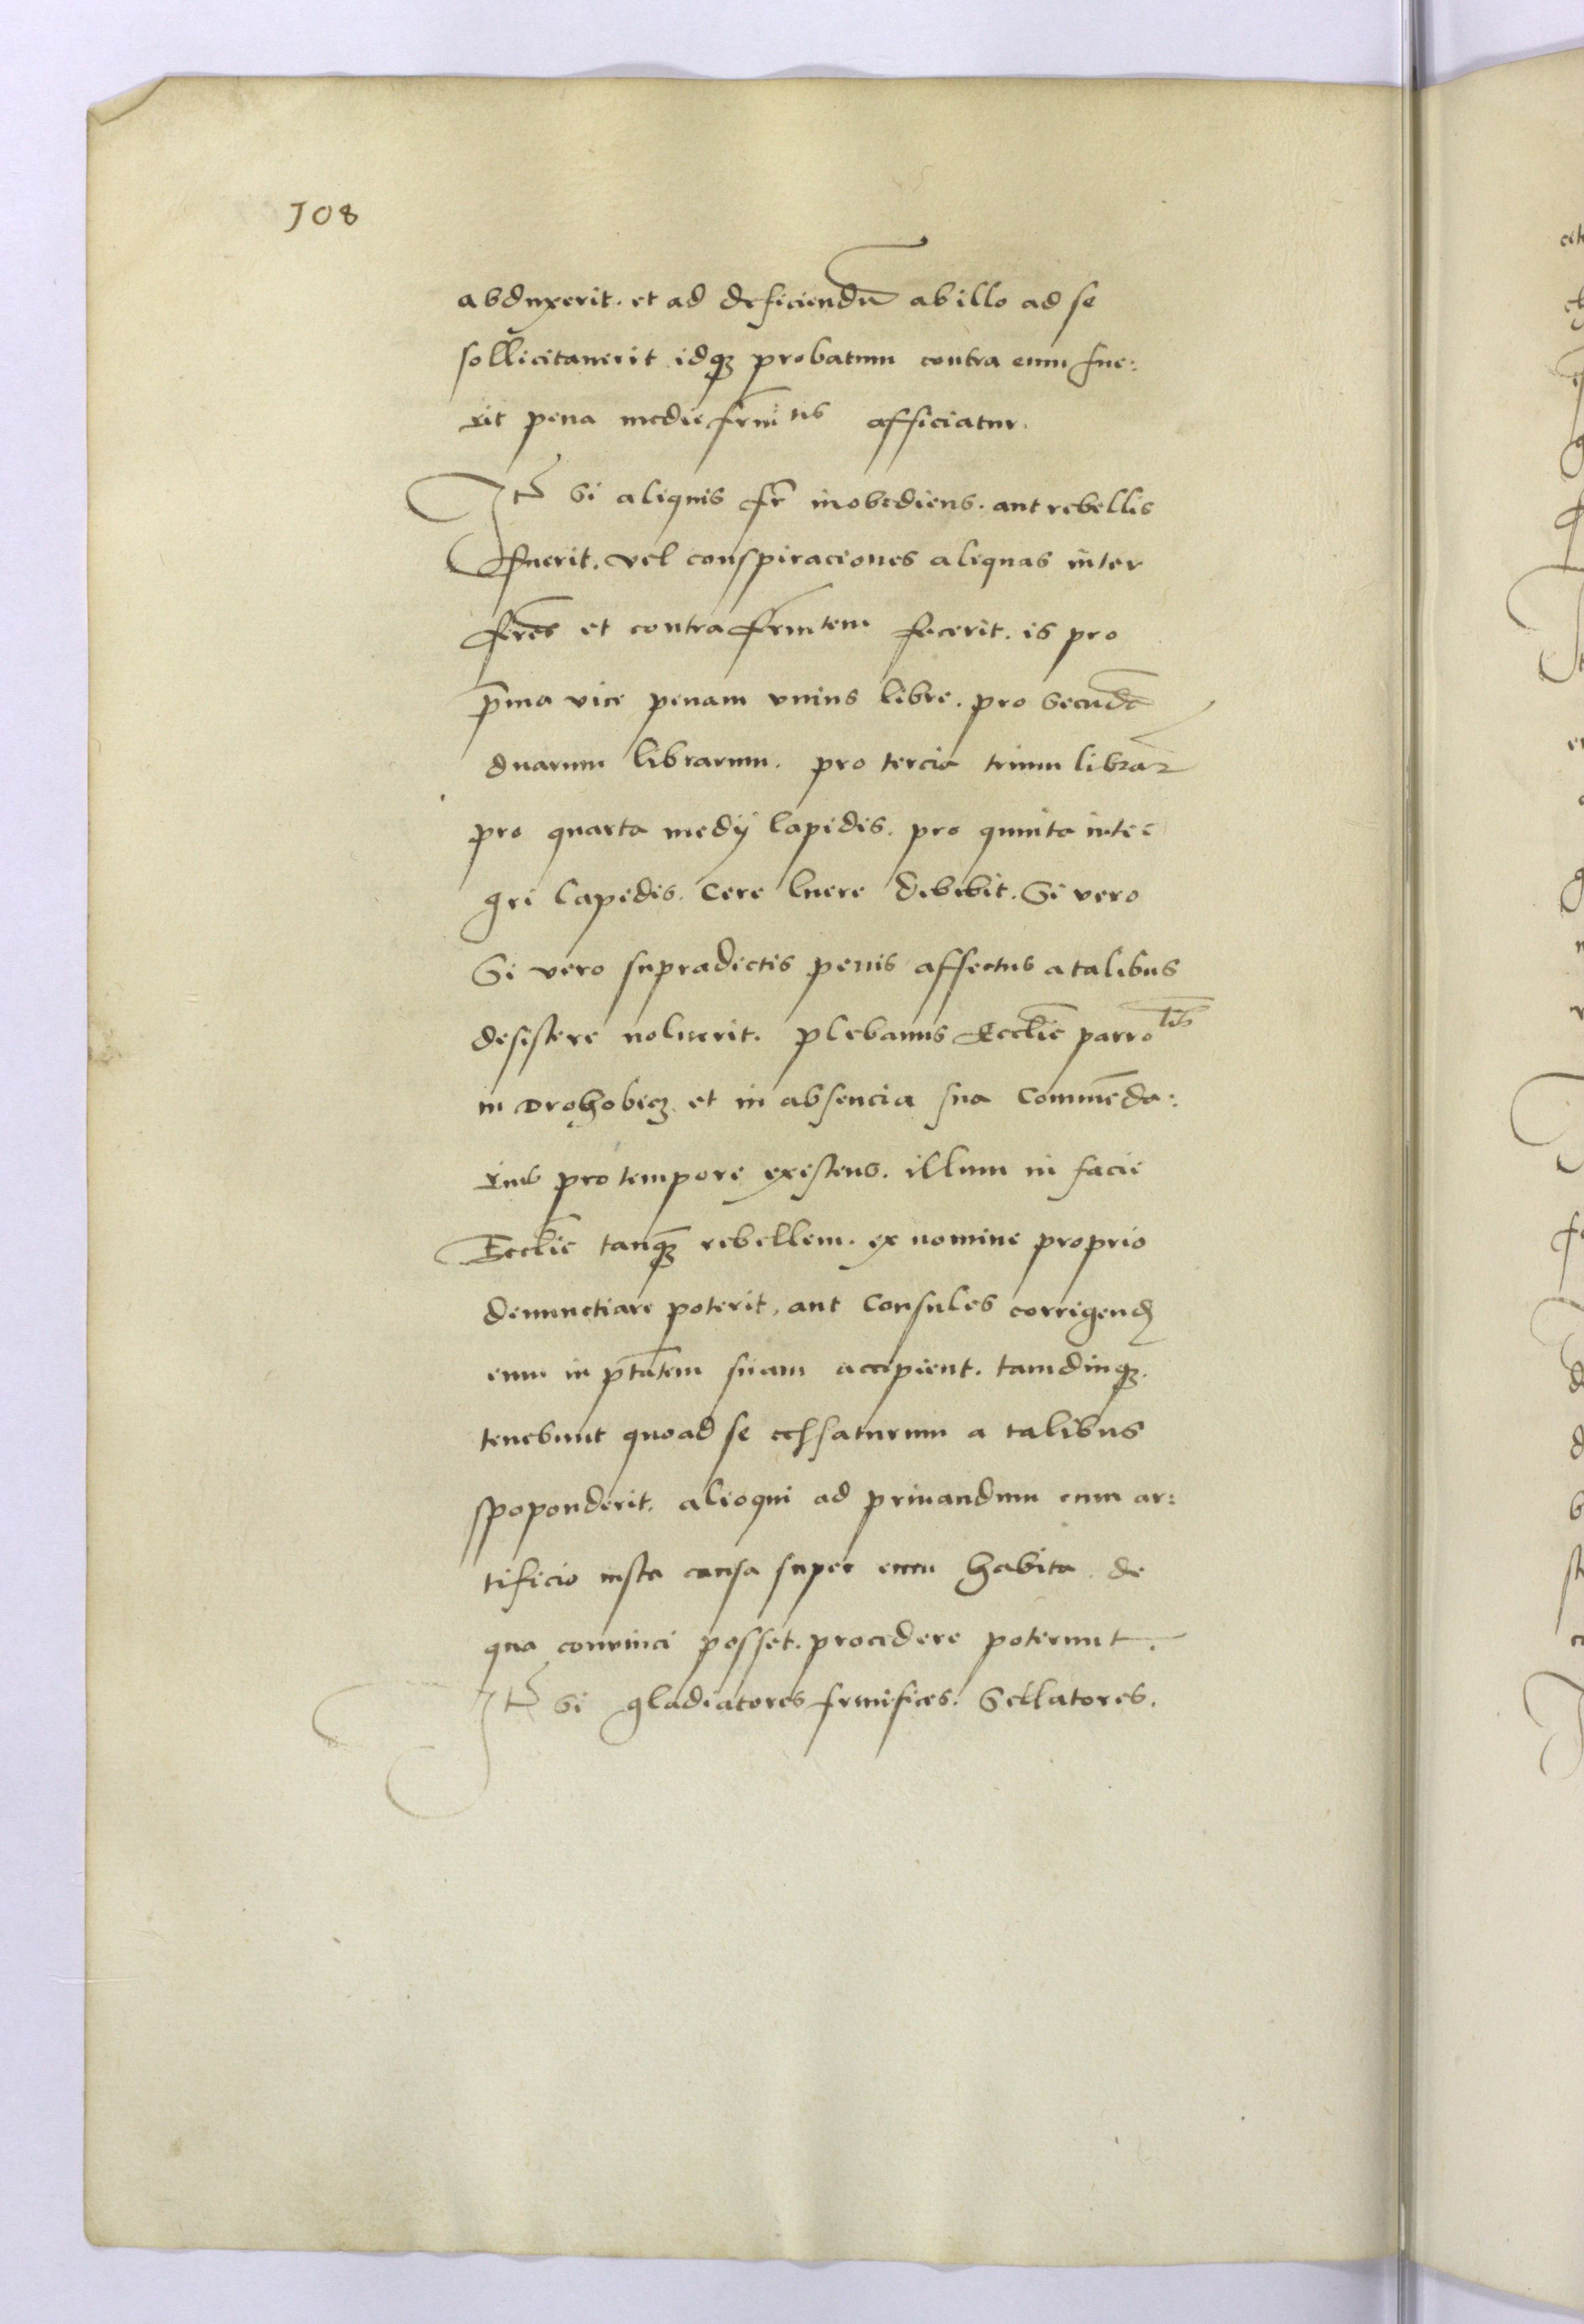 108
abduxerit. et ad deficiendū ab illo ad se
sollicitauerit idqꝫ probatum contra eum fue:
rit pena medie frnitis afficiatur.
Itē Si aliquis fr̄ inobediens. aut rebellis
fuerit. vel conspiraciones aliquas inter
fr̄es et contra frnitem fecerit. is pro
p̄ma vice penam vnius libre. pro Secūda
duarum librarum. pro tercia trium librarꝝ
pro quarta medij lapidis. pro quinta inte:
gri lapidis. Cere luere debebit. Si vero
Si vero supradictis penis affectus a talibus
desistere noluerit. plebanus Eccl̄ie parrotis
in Drohobicz et in absencia sua Commēda:
rius pro tempore existens. illum in facie
Eccl̄ie tanqꝫ rebellem. ex nomine proprio
denunctiare poterit, aut Consules corrigendū
eum in p̄tātem suam accipient. tamdiuqꝫ
tenebunt quoad se cessaturum a talibus
spoponderit. alioqui ad priuandum eum ar:
tificio iusta causa super eum habita de
qua conuinci posset. procedere poterunt.
Itē Si gladiatores frenifices. Sellatores.